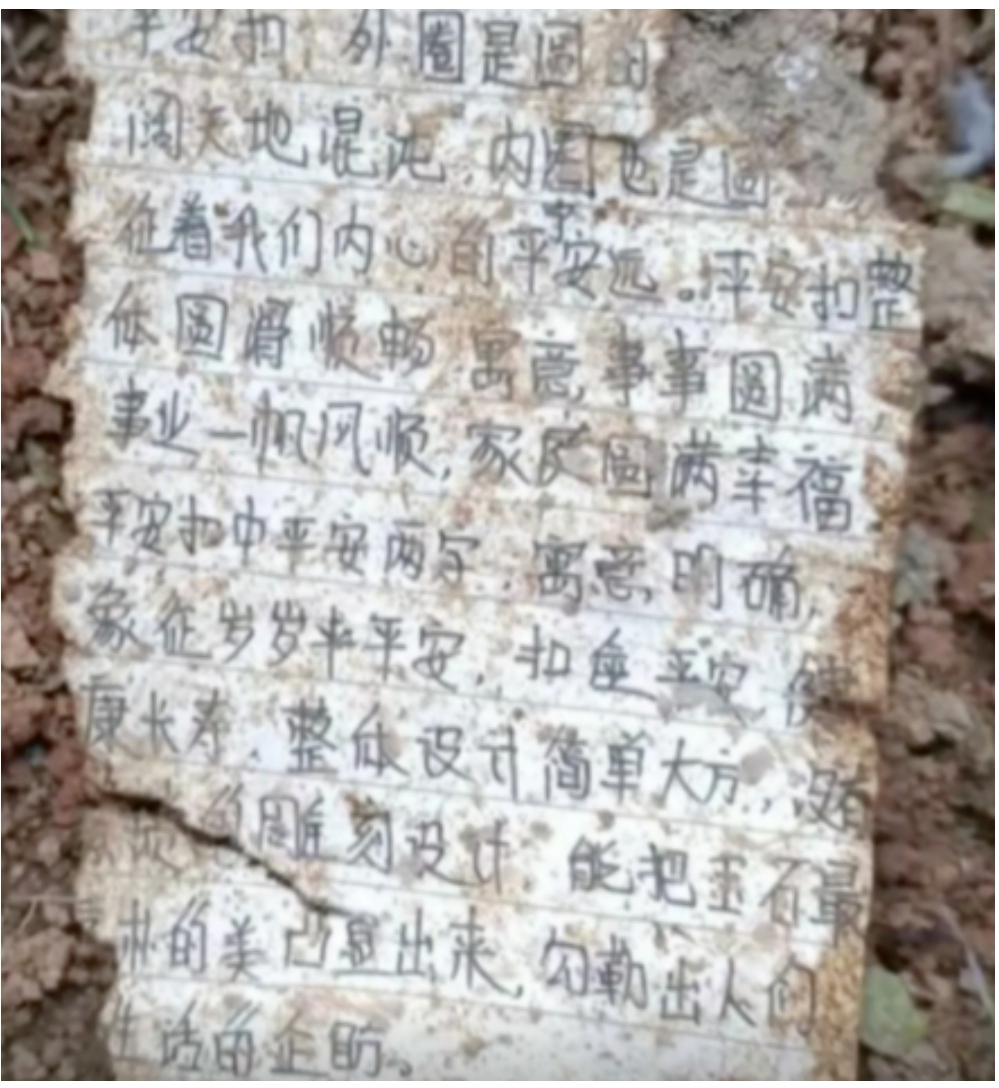 平安扣 外圈是圆的
阔天地混沌,内圈也是圆
征着我们内心的平安远。平安扣整
体圆滑顺畅 寓意事事圆满,
事业一帆风顺,家庭圆满幸福
平安扣中平安两字,寓意明确,
象征岁岁平平安,扣座平安 健
康长寿、整体设计简单大方,没
的雕刻设计 能把玉石最
朴的美凸显出来,勾勒出人们
生活的企盼。